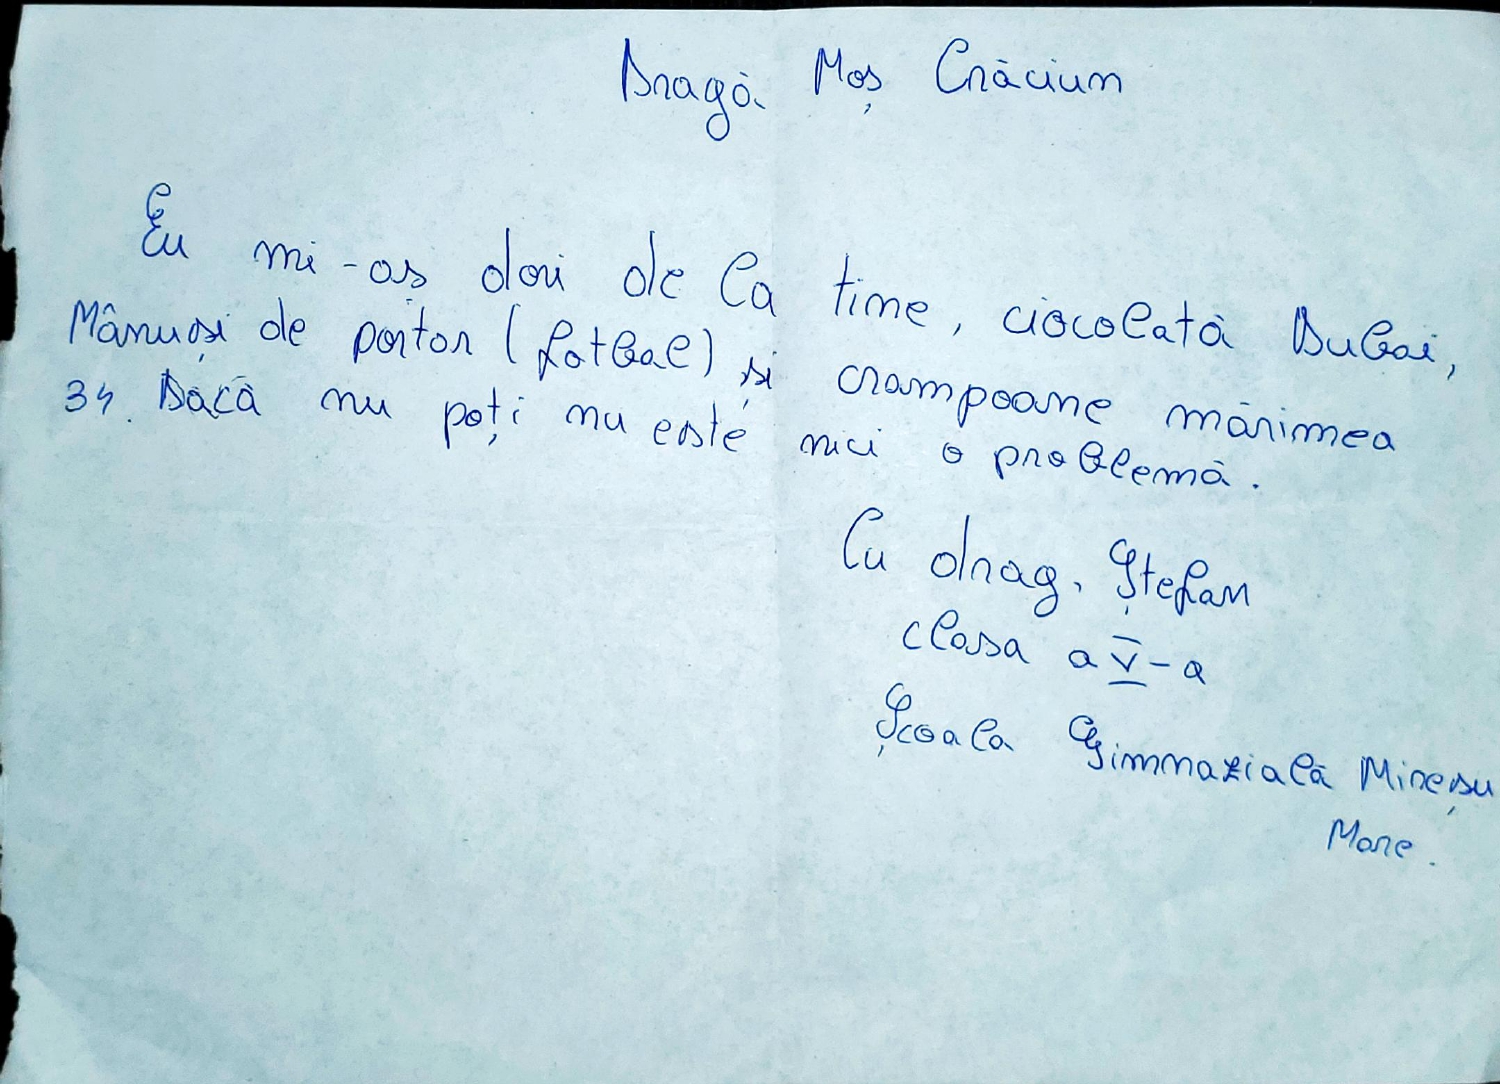 Dragă Moș Crăciun
Eu mi-as dori de la tine, ciocolată Dubai,
Mânuși de portar (fotbal) și crampoane mărimea
34. Dăcă nu poți nu este nici o problemă.
Cu drag, Ștefan
clasa a V-a
Școala Gimnazială Mireșu
Mare.